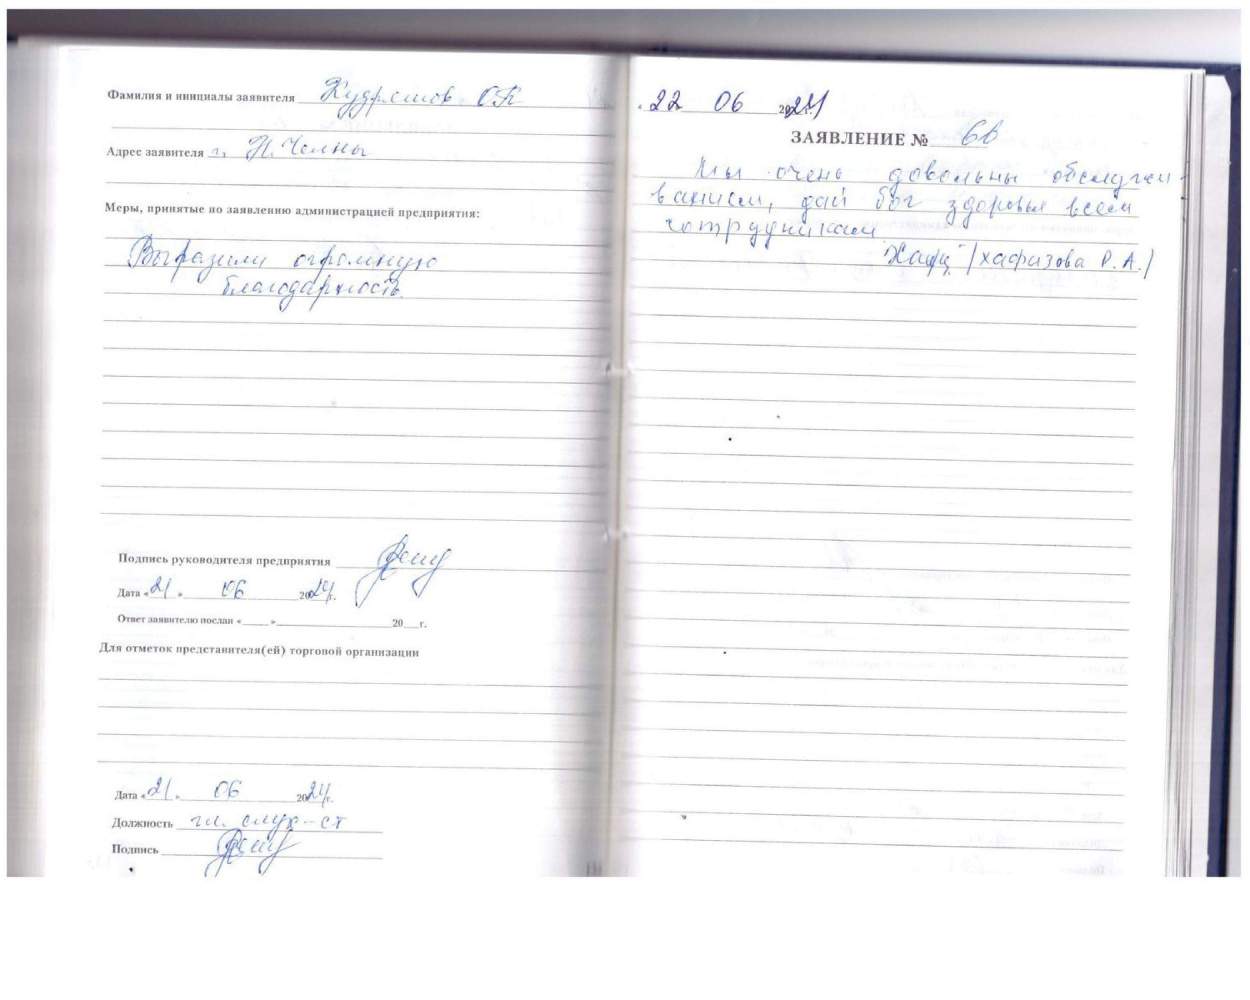 Фамилия и инициалы заявителя О.К
Адрес заявителя г. Н. Челны
Меры, принятые по заявлению администрацией предприятия:
Выразили огромную
благодарность.
Подпись руководителя предприятия
Дата «21» 06 2024г.
Ответ заявителю послан « » 20 г.
Для отметок представителя(ей) торговой организации
Дата «21» 06 2024г.
Должность
Подпись
22 06 2024г.
ЗАЯВЛЕНИЕ №
Мы очень довольны обслужи-
ванием, дай бог здоровья всем
сотрудникам
/хафизова Р. А./